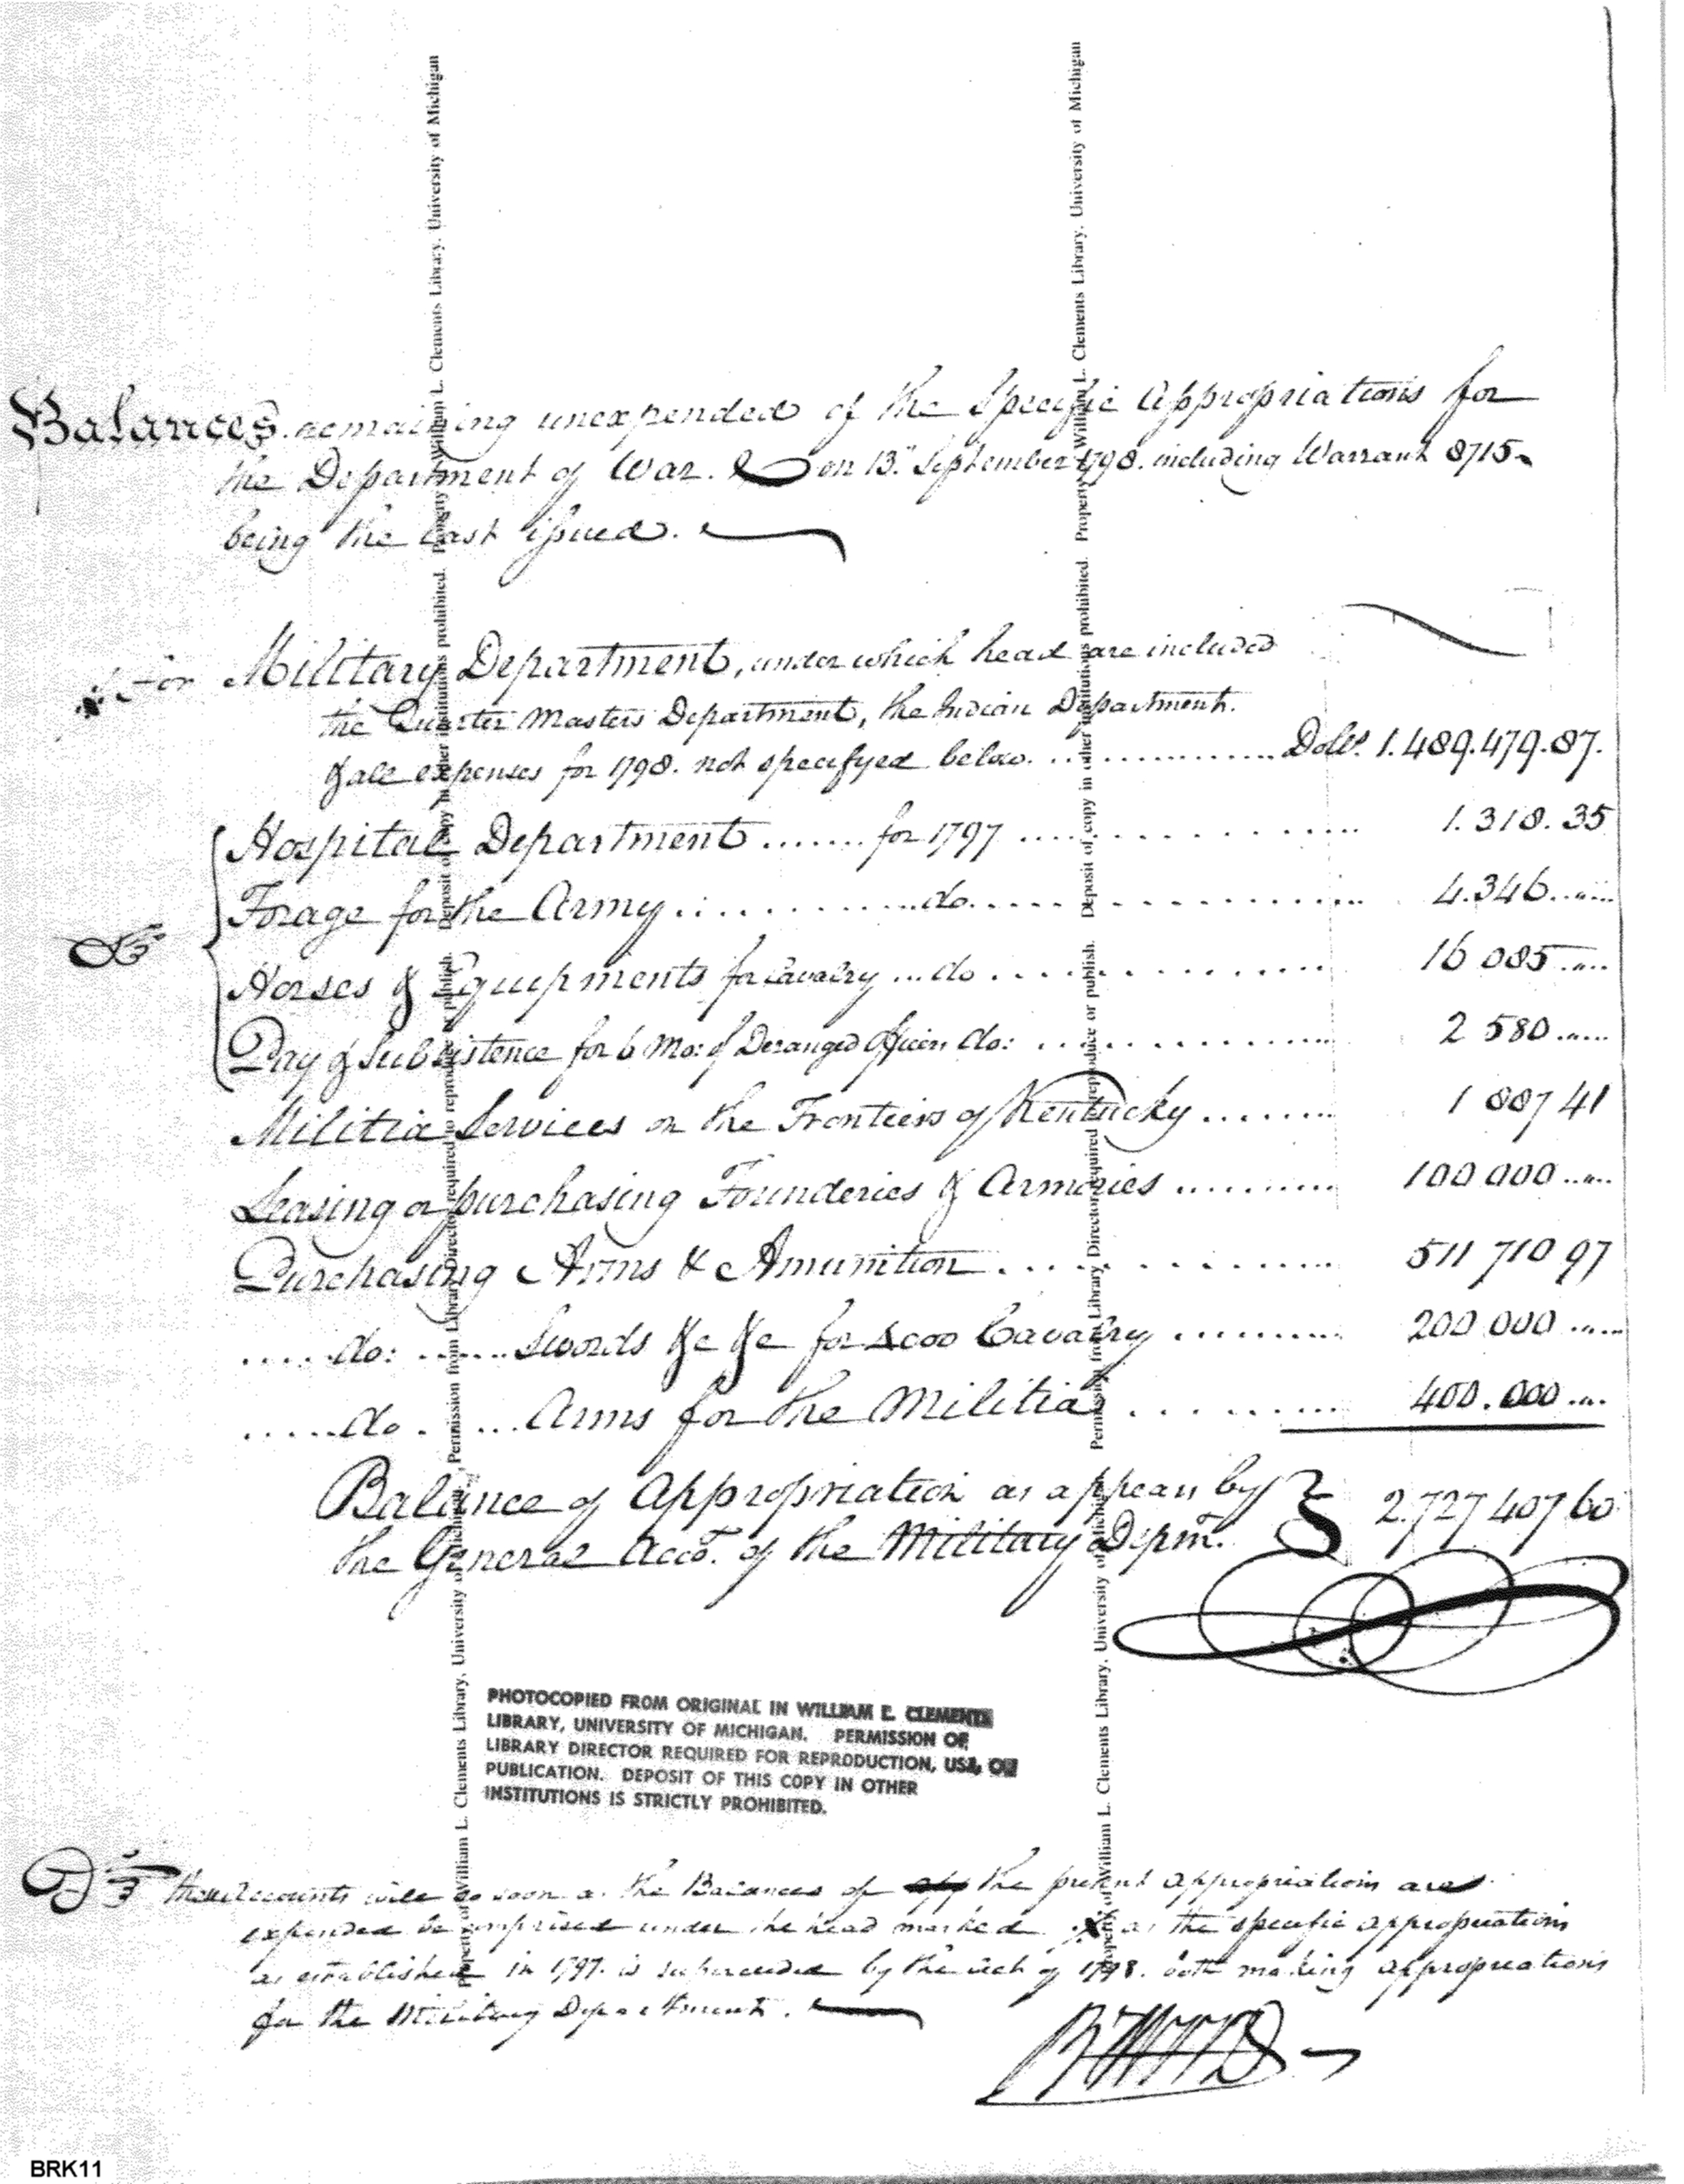 Balances remaining unexpended of the Specific Appropriations for
the Department of War. on 13th September 1798. including Warrant 8715
being the last issued.
For Military Department, under which head are included
the Quarter Masters Department, the Indian Department.
& all expenses for 1798. not specifyed below. ............ Dolrs. 1.489.479.87.
Hospital Department ....... for 1797 ............... 1.318.35
Forage for the Army ............ do ............... 4.346.....
Horses & Equipments for Cavalry ... do ............ 16 085.....
Pay & Subsistence for 6 Mo: of Deranged Officers do: ............ 2 580.....
Militia Services on the Frontiers of Kentucky ....... 1 887 41
Leasing or purchasing Founderies & Armories ......... 100 000.....
Purchasing Arms & Amunition ............ 511 710 97
.... do: ...... Swords &c &c for 4000 Cavalry ......... 200 000.....
..... do . ... Arms for the Militia ......... 400.000....
Balance of Appropriation as appears by
the General Acco.t of the Military Depmt. 2.727 407 60
PHOTOCOPIED FROM ORIGINAL IN WILLIAM L. CLEMENTS
LIBRARY, UNIVERSITY OF MICHIGAN. PERMISSION OF
LIBRARY DIRECTOR REQUIRED FOR REPRODUCTION, USE, OR
PUBLICATION. DEPOSIT OF THIS COPY IN OTHER
INSTITUTIONS IS STRICTLY PROHIBITED.
these Accounts will so soon as the Balances of the present appropriations are
expended be comprised under the head marked as the specific appropriations
as established in 1797. is superceeded by the act of 1798. both making appropriations
for the Military Department.
BRK11
Property of William L. Clements Library, University of Michigan, Permission from Library Director required to reproduce or publish. Deposit of copy in other institutions prohibited. Property of William L. Clements Library, University of Michigan
Property of William L. Clements Library, University of Michigan, Permission from Library Director required to reproduce or publish. Deposit of copy in other institutions prohibited. Property of William L. Clements Library, University of Michigan